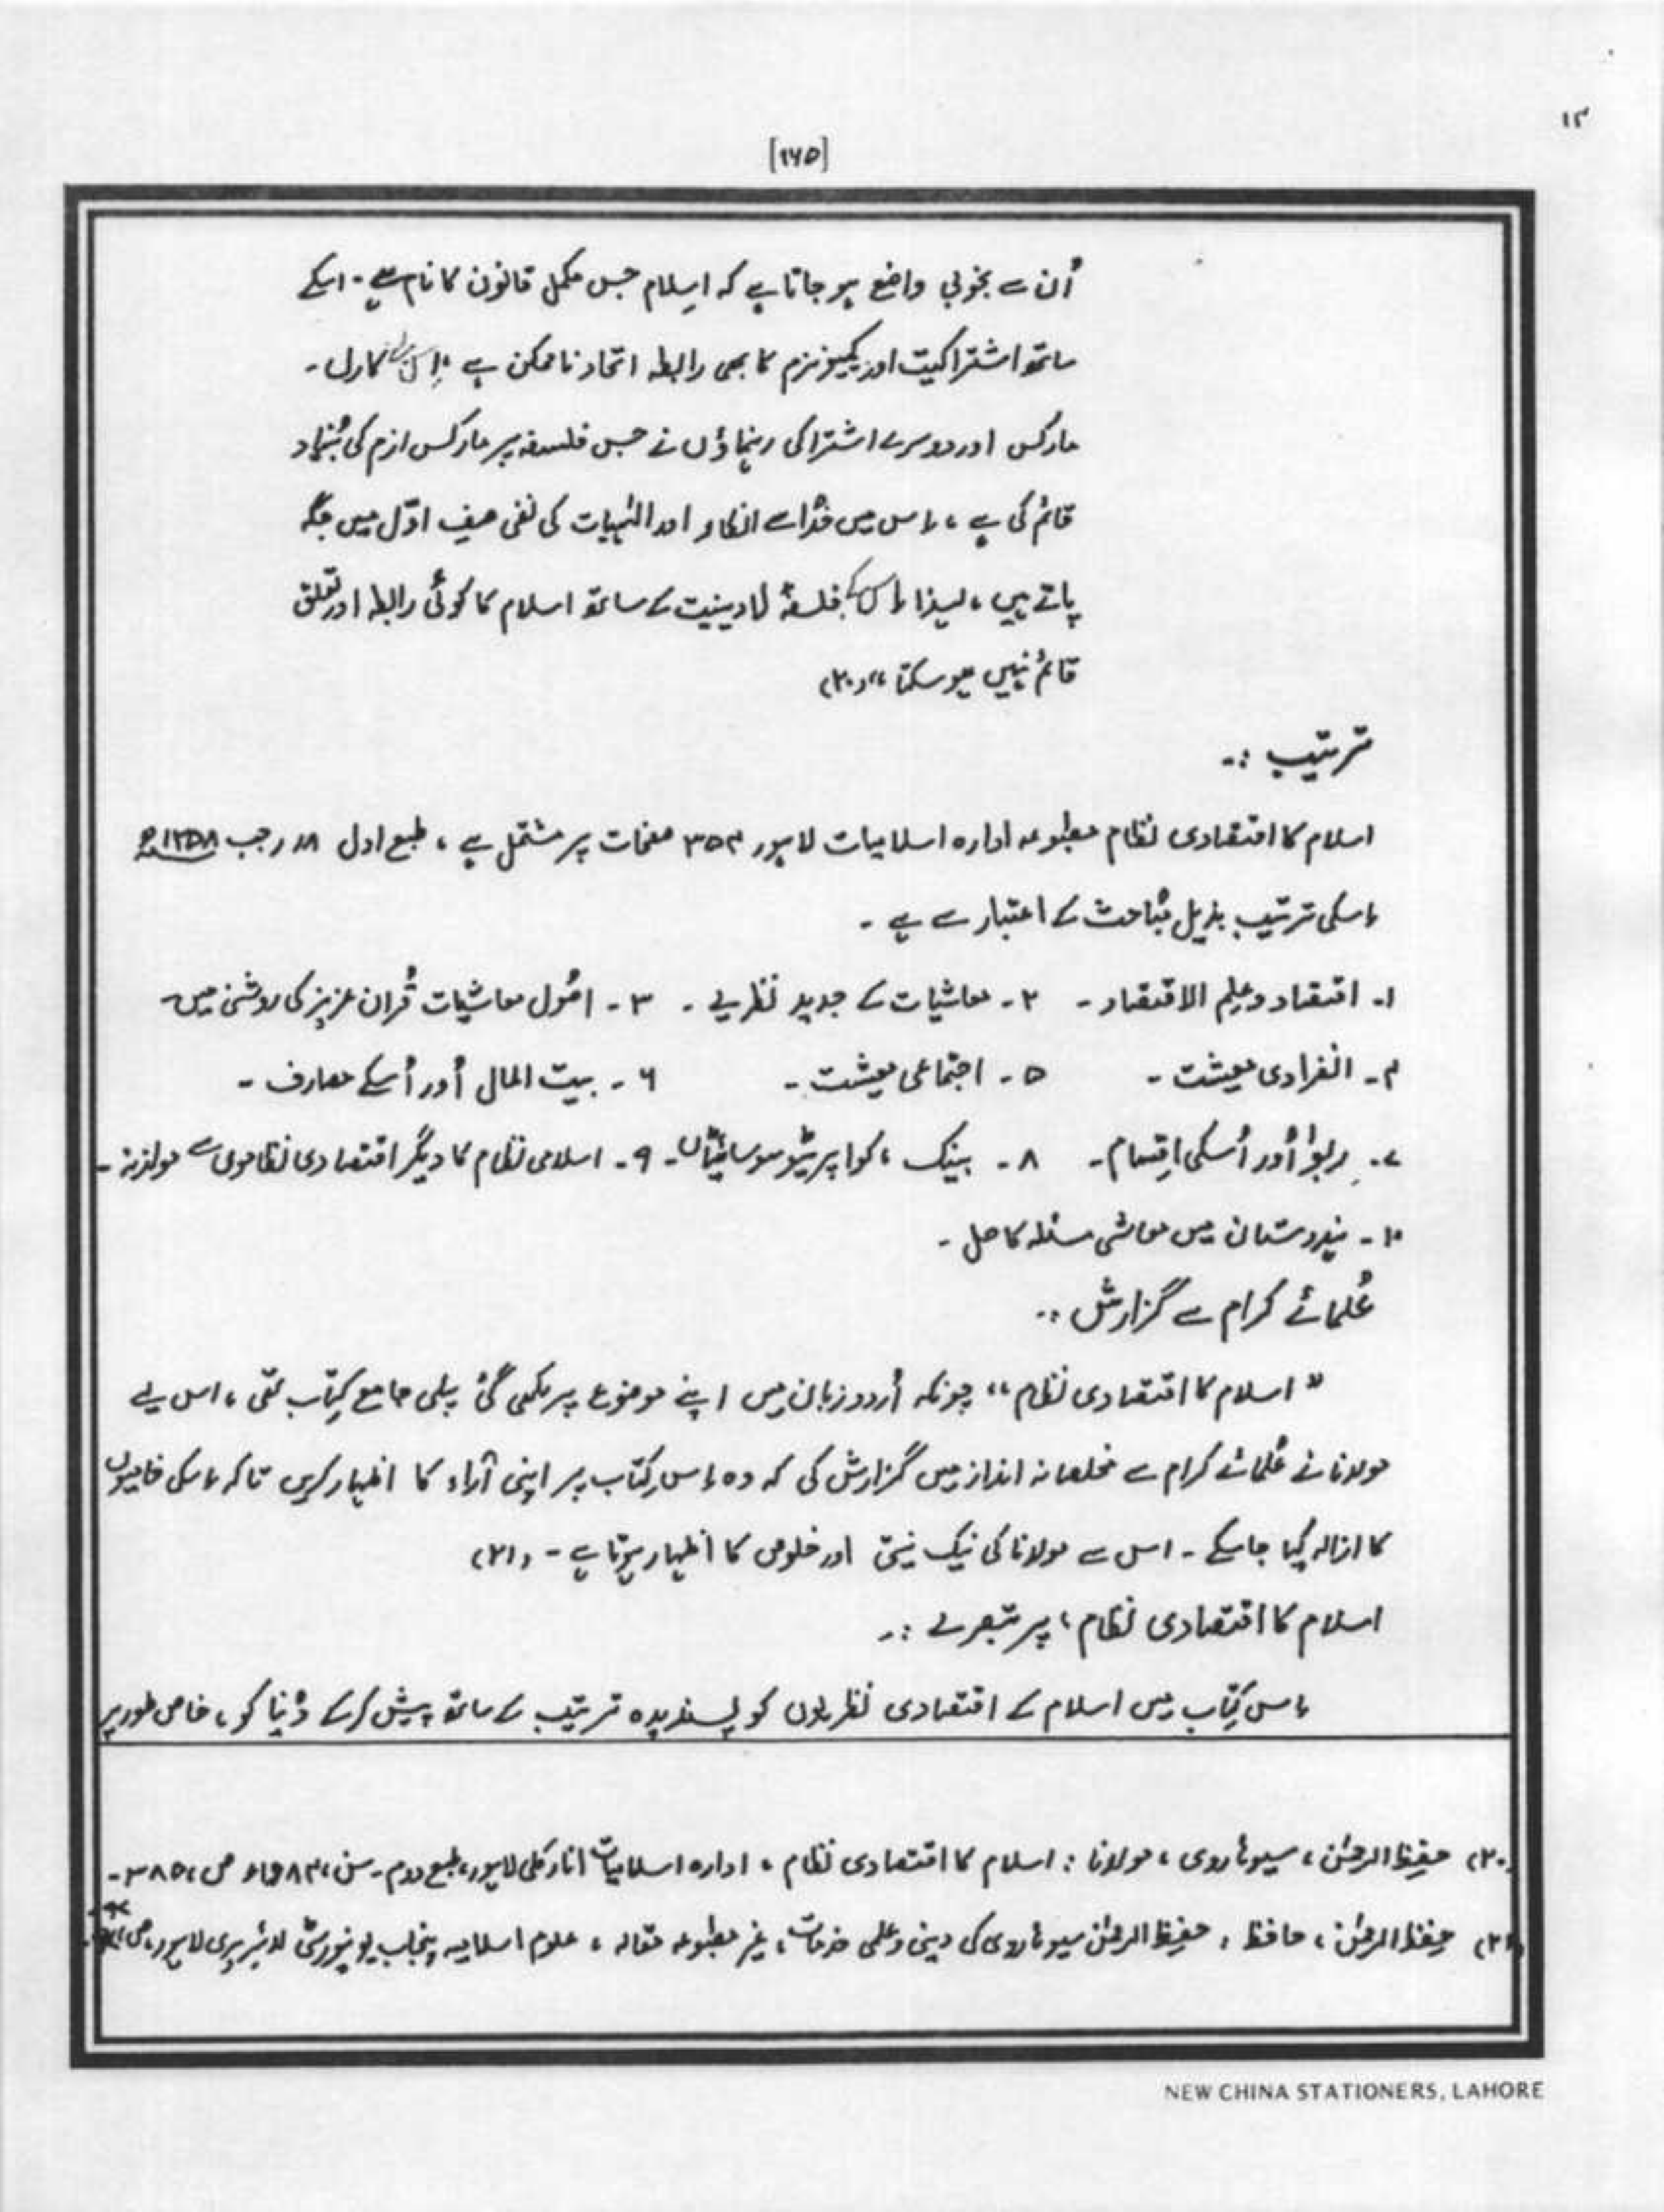 ۱۲
[۱۶۵]
اُن سے بخوبی واضع ہو جاتا ہے کہ اسلام جس مکمل قانون کا نام ہے۔ اسکے
ساتھ اشتراکیت اور کمیونزم کا بھی رابطہ اتحاد ناممکن ہے اِس لئے کارل۔
مارکس اور دوسرے اشتراکی رہنماؤں نے جس فلسفہ پر مارکس ازم کی بُنیاد
قائم کی ہے، اس میں خُدا سے انکار اور الٰہیات کی نفی صفِ اوّل میں جگہ
پاتے ہیں، لہذا اس کے فلسفۂ لادینیت کے ساتھ اسلام کا کوئی رابطہ اور تعلق
قائم نہیں ہو سکتا،،(۲۰)
ترتیب :۔
اسلام کا اقتصادی نظام مطبوعہ ادارہ اسلامیات لاہور ۳۵۴ صفحات پر مشتمل ہے، طبع اول ۱۸ رجب ۱۳۵۸ھ
اسکی ترتیب بذیل مُباحث کے اعتبار سے ہے ۔
۱۔ اقتصاد و علِم الاقتصاد ۔ ۲۔ معاشیات کے جدید نظریے ۔ ۳۔ اصُول معاشیات قُران عزیز کی روشنی میں
۴۔ انفرادی معیشت ۔ ۵۔ اجتماعی معیشت ۔ ۶۔ بیت المال اُور اُسکے مصارف ۔
۷۔ رِبوٰا اُور اُسکی اقِسام۔ ۸۔ بینک ، کواپریٹیو سوسائٹیاں۔ ۹۔ اسلامی نظام کا دیگر اقتصادی نظاموں سے موازنہ ۔
۱۰۔ ہندوستان میں معاشی مسئلہ کا حل ۔
عُلمائے کرام سے گزارش :۔
” اسلام کا اقتصادی نظام ،، چونکہ اُردو زبان میں اپنے موضوع پر لکھی گئی پہلی جامع کتِاب تھی ، اس لیے
مولانا نے عُلمائے کرام سے مخلصانہ انداز میں گزارش کی کہ وہ اس کتِاب پر اپنی آراء کا اظہار کریں تاکہ اسکی خامیوں
کا ازالہ کیا جا سکے ۔ اس سے مولانا کی نیک نیتی اور خلوص کا اظہار ہوتا ہے ۔ (۲۱)
اسلام کا اقتصادی نظام ، پر تبصرے :۔
اس کتِاب میں اسلام کے اقتصادی نظریوں کو پسندیدہ ترتیب کے ساتھ پیش کرکے دُنیا کو ، خاص طور پر
(۲۰) حفِیظ الرحمٰن ، سیوہاروی ، مولانا : اسلام کا اقتصادی نظام ، ادارہ اسلامیات انارکلی لاہور، طبع دوم۔ سن، ۱۹۸۴ء ص، ۳۸۵۔
(۲۱) حفِیظ الرحمٰن ، حافظ ، حفِیظ الرحمٰن سیوہاروی کی دینی و علمی خدمات ، غیر مطبوعہ مقالہ ، علوم اسلامیہ پنجاب یونیورسٹی لائبریری لاہور، ص،
NEW CHINA STATIONERS, LAHORE